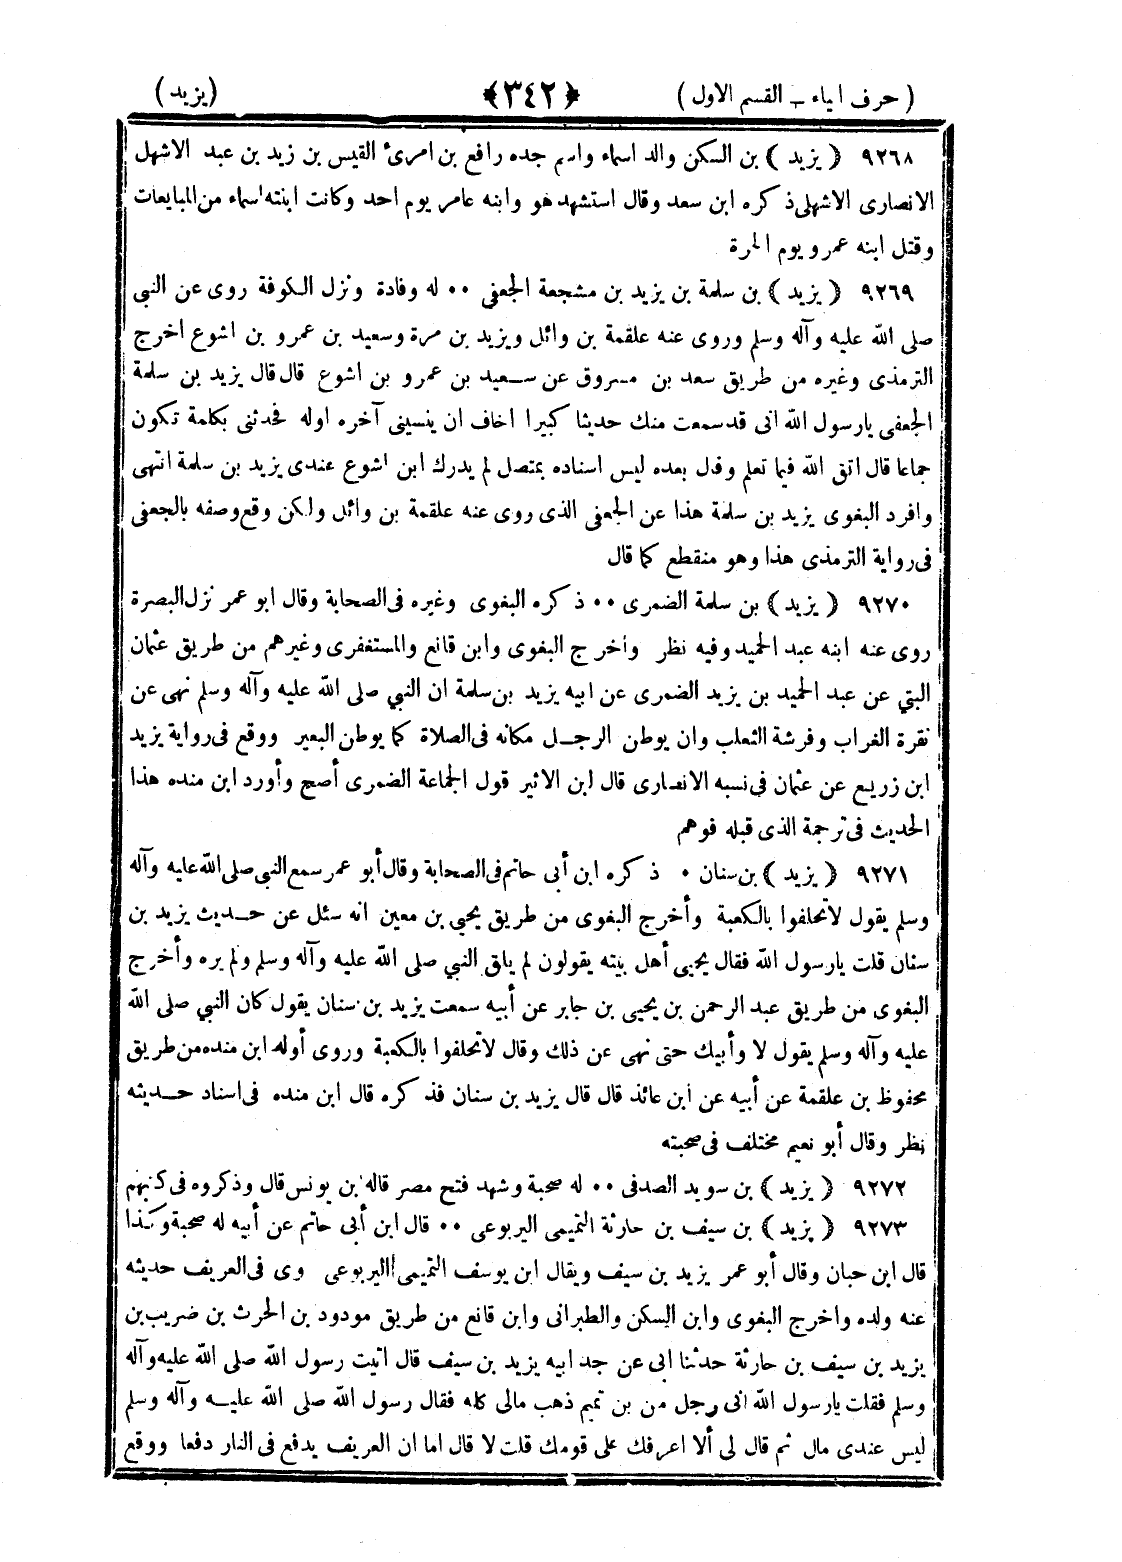 ( حرف الياء – القسم الاول ) ﴿٣٤٢﴾ (يزيد)
٩٢٦٨ ( يزيد ) بن السكن والد اسماء واسم جده رافع بن امرئ القيس بن زيد بن عبد الاشهل
الانصارى الاشهلى ذكره ابن سعد وقال استشهد هو وابنه عامر يوم احد وكانت ابنته اسماء من المبايعات
وقتل ابنه عمرو يوم الحرة
٩٢٦٩ ( يزيد ) بن سلمة بن يزيد بن مشجعة الجعفى ٠٠ له وفادة ونزل الكوفة روى عن النبي
صلى الله عليه وآله وسلم وروى عنه علقمة بن وائل ويزيد بن مرة وسعيد بن عمرو بن اشوع اخرج
الترمذى وغيره من طريق سعد بن مسروق عن سعيد بن عمرو بن اشوع قال قال يزيد بن سلمة
الجعفى يارسول الله انى قد سمعت منك حديثا كبيرا اخاف ان ينسينى آخره اوله فحدثنى بكلمة تكون
جماعا قال اتق الله فيما تعلم وقال بعده ليس اسناده بمتصل لم يدرك ابن اشوع عندى يزيد بن سلمة انتهى
وافرد البغوى يزيد بن سلمة هذا عن الجعفى الذى روى عنه علقمة بن وائل ولكن وقع وصفه بالجعفى
فى رواية الترمذى هذا وهو منقطع كما قال
٩٢٧٠ ( يزيد ) بن سلمة الضمرى ٠٠ ذكره البغوى وغيره فى الصحابة وقال ابو عمر نزل البصرة
روى عنه ابنه عبد الحميد وفيه نظر وأخرج البغوى وابن قانع والمستغفرى وغيرهم من طريق عثمان
البتي عن عبد الحميد بن يزيد الضمرى عن ابيه يزيد بن سلمة ان النبي صلى الله عليه وآله وسلم نهى عن
نقرة الغراب وفرشة الثعلب وان يوطن الرجل مكانه فى الصلاة كما يوطن البعير ووقع فى رواية يزيد
ابن زريع عن عثمان فى نسبه الانصارى قال ابن الاثير قول الجماعة الضمرى أصح وأورد ابن منده هذا
الحديث فى ترجمة الذى قبله فوهم
٩٢٧١ ( يزيد ) بن سنان ٠ ذكره ابن أبى حاتم فى الصحابة وقال أبو عمر سمع النبى صلى الله عليه وآله
وسلم يقول لا تحلفوا بالكعبة وأخرج البغوى من طريق يحيي بن معين انه سئل عن حديث يزيد بن
سنان قلت يارسول الله فقال يحيى أهل بيته يقولون لم يلق النبي صلى الله عليه وآله وسلم ولم يره وأخرج
البغوى من طريق عبد الرحمن بن يحيي بن جابر عن أبيه سمعت يزيد بن سنان يقول كان النبي صلى الله
عليه وآله وسلم يقول لا وأبيك حتى نهى عن ذلك وقال لا تحلفوا بالكعبة وروى أوله ابن منده من طريق
محفوظ بن علقمة عن أبيه عن ابن عائذ قال قال يزيد بن سنان فذكره قال ابن منده فى اسناد حديثه
نظر وقال أبو نعيم مختلف فى صحبته
٩٢٧٢ ( يزيد ) بن سويد الصدفى ٠٠ له صحبة وشهد فتح مصر قاله بن يونس قال وذكروه فى كتبهم
٩٢٧٣ ( يزيد ) بن سيف بن حارثة التميمى اليربوعى ٠٠ قال ابن أبى حاتم عن أبيه له صحبة وكذا
قال ابن حبان وقال أبو عمر يزيد بن سيف ويقال ابن يوسف التميمى اليربوعى وى فى العريف حديثه
عنه ولده واخرج البغوى وابن السكن والطبرانى وابن قانع من طريق مودود بن الحرث بن ضريب بن
يزيد بن سيف بن حارثة حدثنا ابى عن جد ابيه يزيد بن سيف قال اتيت رسول الله صلى الله عليه وآله
وسلم فقلت يارسول الله انى رجل من بن تميم ذهب مالى كله فقال رسول الله صلى الله عليه وآله وسلم
ليس عندى مال ثم قال لى ألا اعرفك على قومك قلت لا قال اما ان العريف يدفع فى النار دفعا ووقع